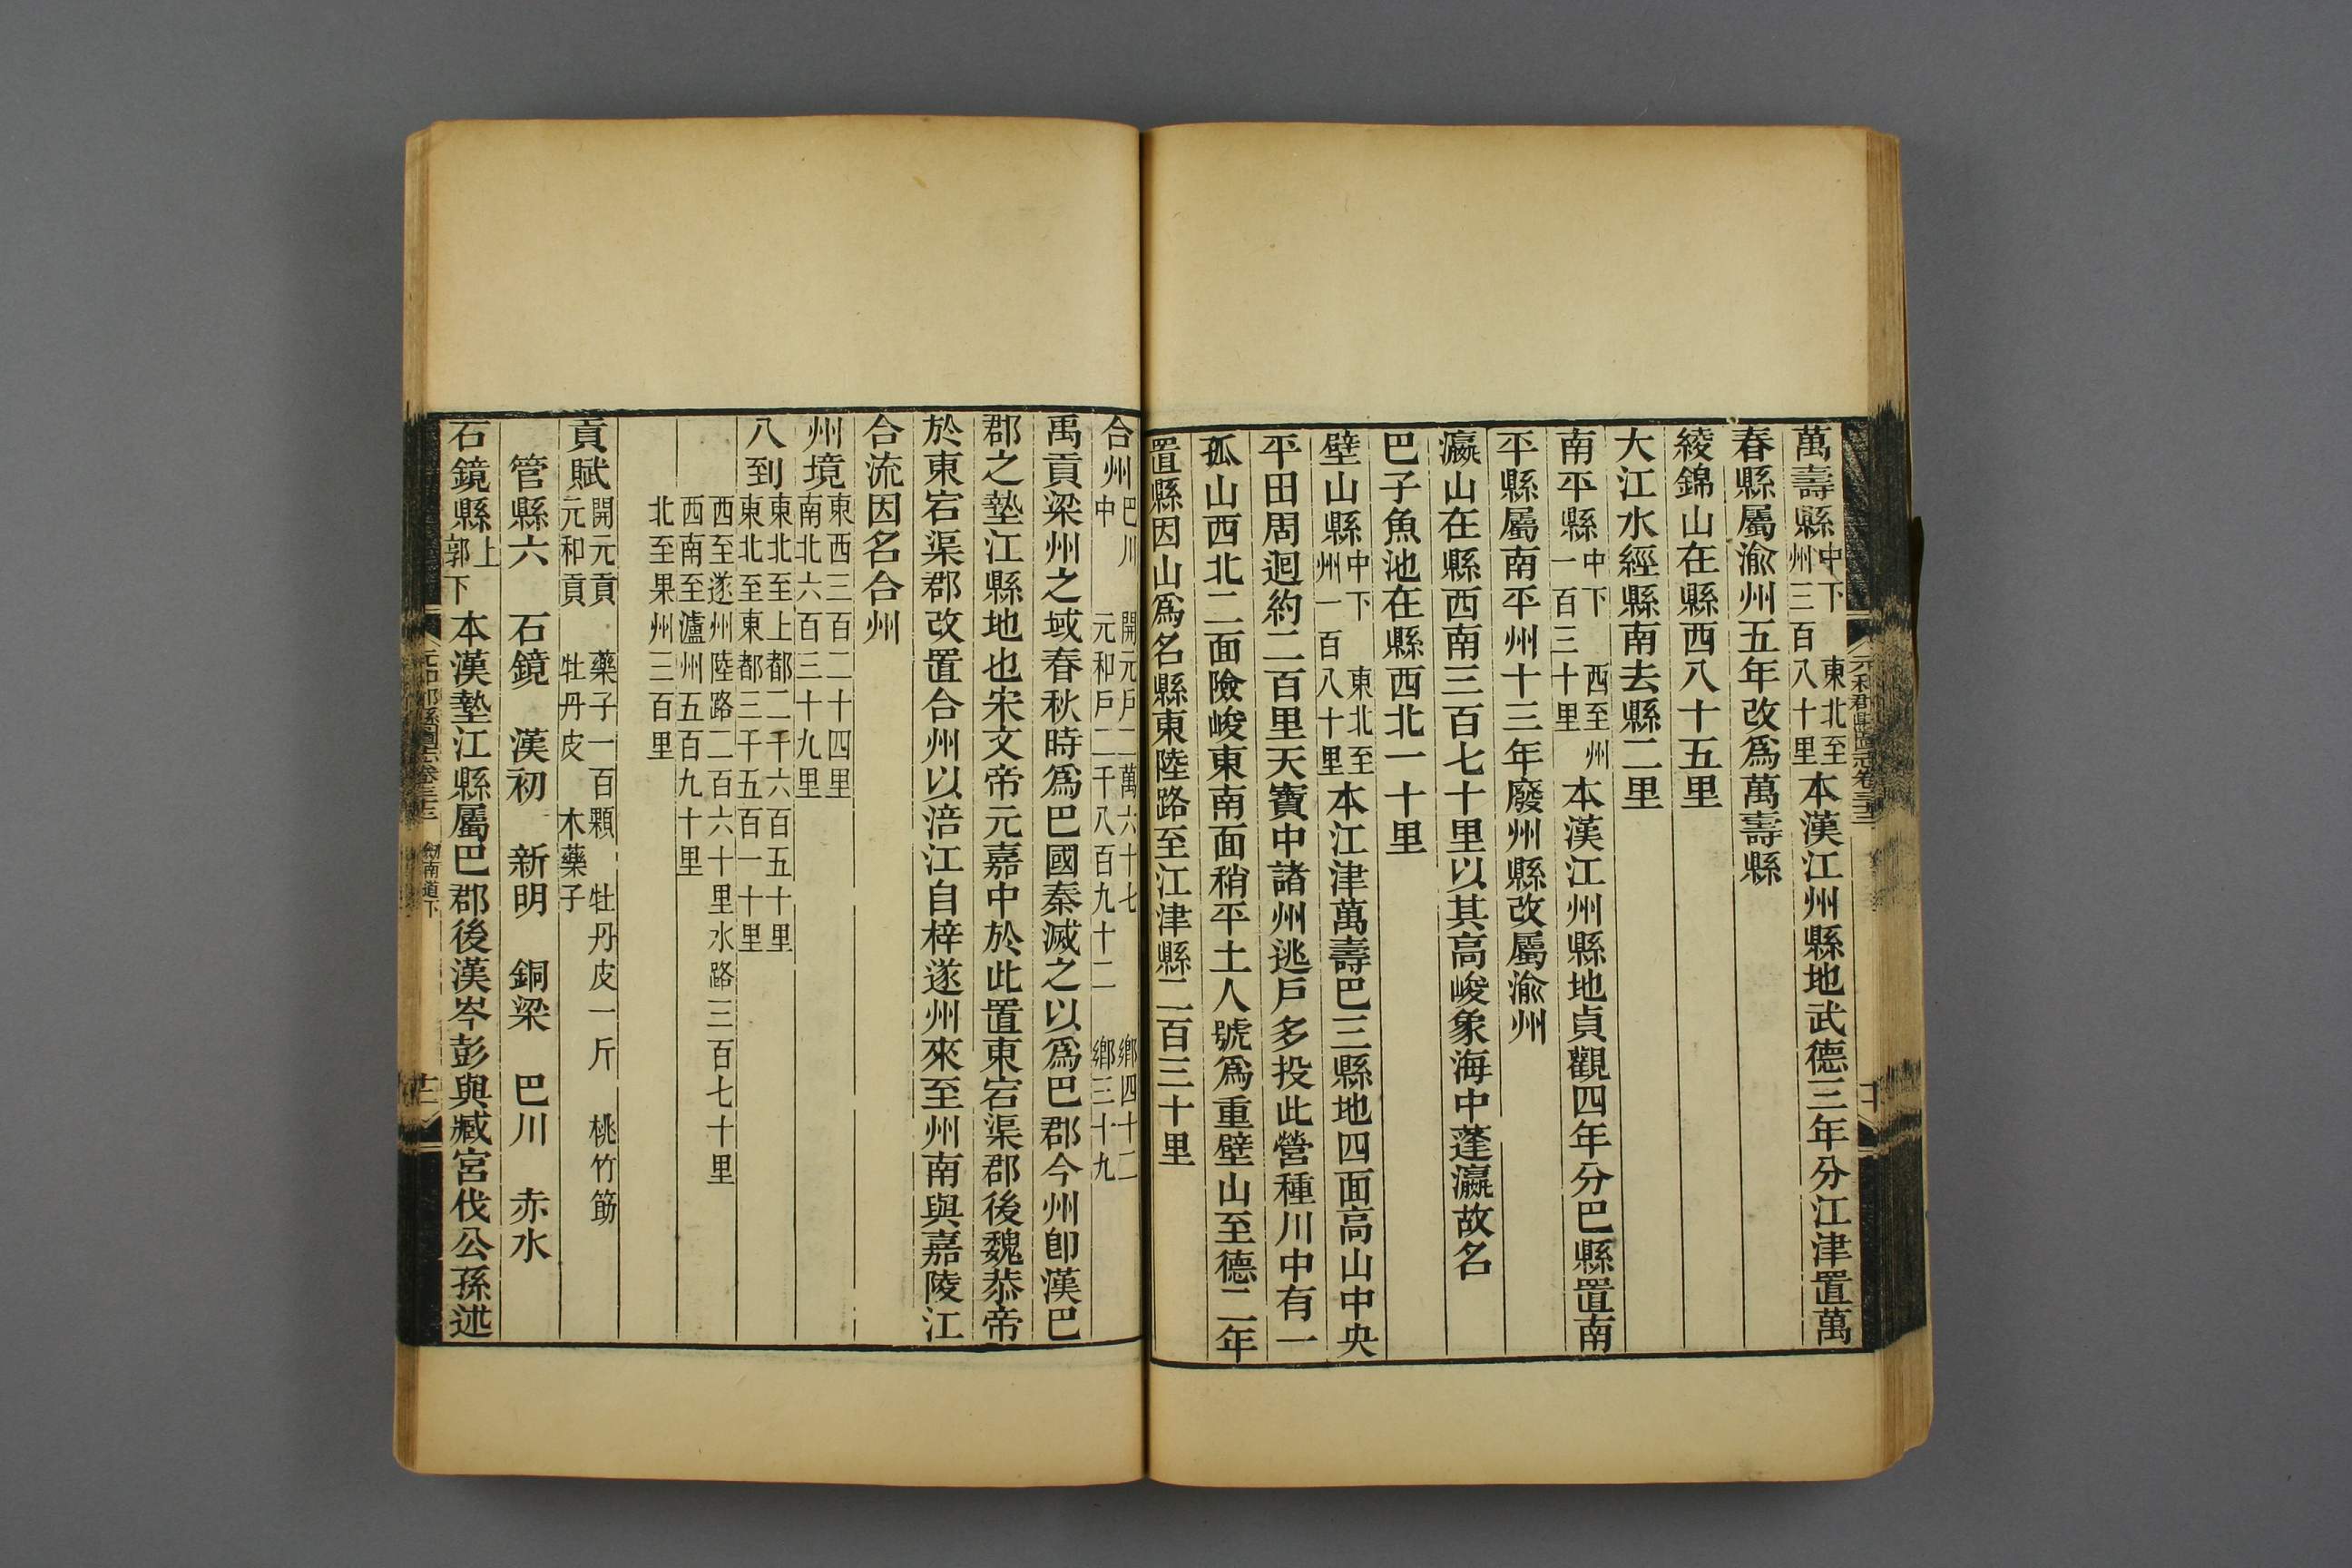 萬壽縣中下 東北至州三百八十里本漢江州縣地武德三年分江津置萬
春縣屬渝州五年改爲萬壽縣
綾錦山在縣西八十五里
大江水經縣南去縣二里
南平縣中下 西至州一百三十里本漢江州縣地貞觀四年分巴縣置南
平縣屬南平州十三年廢州縣改屬渝州
瀛山在縣西南三百七十里以其高峻象海中蓬瀛故名
巴子魚池在縣西北一十里
壁山縣中下 東北至州一百八十里本江津萬壽巴三縣地四面高山中央
平田周迴約二百里天寶中諸州逃戶多投此營種川中有一
孤山西北二面險峻東南面稍平土人號爲重壁山至德二年
置縣因山爲名縣東陸路至江津縣二百三十里
合州巴川中 開元戶二萬六十七 鄉四十二 元和戶二千八百九十二 鄉三十九
禹貢梁州之域春秋時爲巴國秦滅之以爲巴郡今州卽漢巴
郡之墊江縣地也宋文帝元嘉中於此置東宕渠郡後魏恭帝
於東宕渠郡改置合州以涪江自梓遂州來至州南與嘉陵江
合流因名合州
州境東西三百二十四里 南北六百三十九里
八到東北至上都二千六百五十里 東北至東都三千五百一十里
西至遂州陸路二百六十里水路三百七十里 西南至瀘州五百九十里
北至果州三百里
貢賦開元貢 藥子一百顆 牡丹皮一斤 桃竹筯 元和貢 牡丹皮 木藥子
管縣六 石鏡 漢初 新明 銅梁 巴川 赤水
石鏡縣上郭下 本漢墊江縣屬巴郡後漢岑彭與臧宮伐公孫述
元和郡縣圖志卷三十三 劍南道下